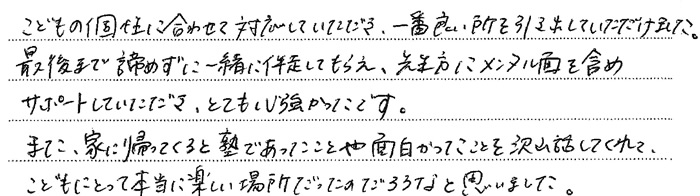 こどもの個性に合わせて対応していただき、一番良い所を引き出していただけました。
最後まで諦めずに一緒に伴走してもらえ、先生方にメンタル面を含め
サポートしていただき、とても心強かったです。
また、家に帰ってくると塾であったことや面白かったことを沢山話してくれて、
こどもにとって本当に楽しい場所だったのだろうなと思いました。